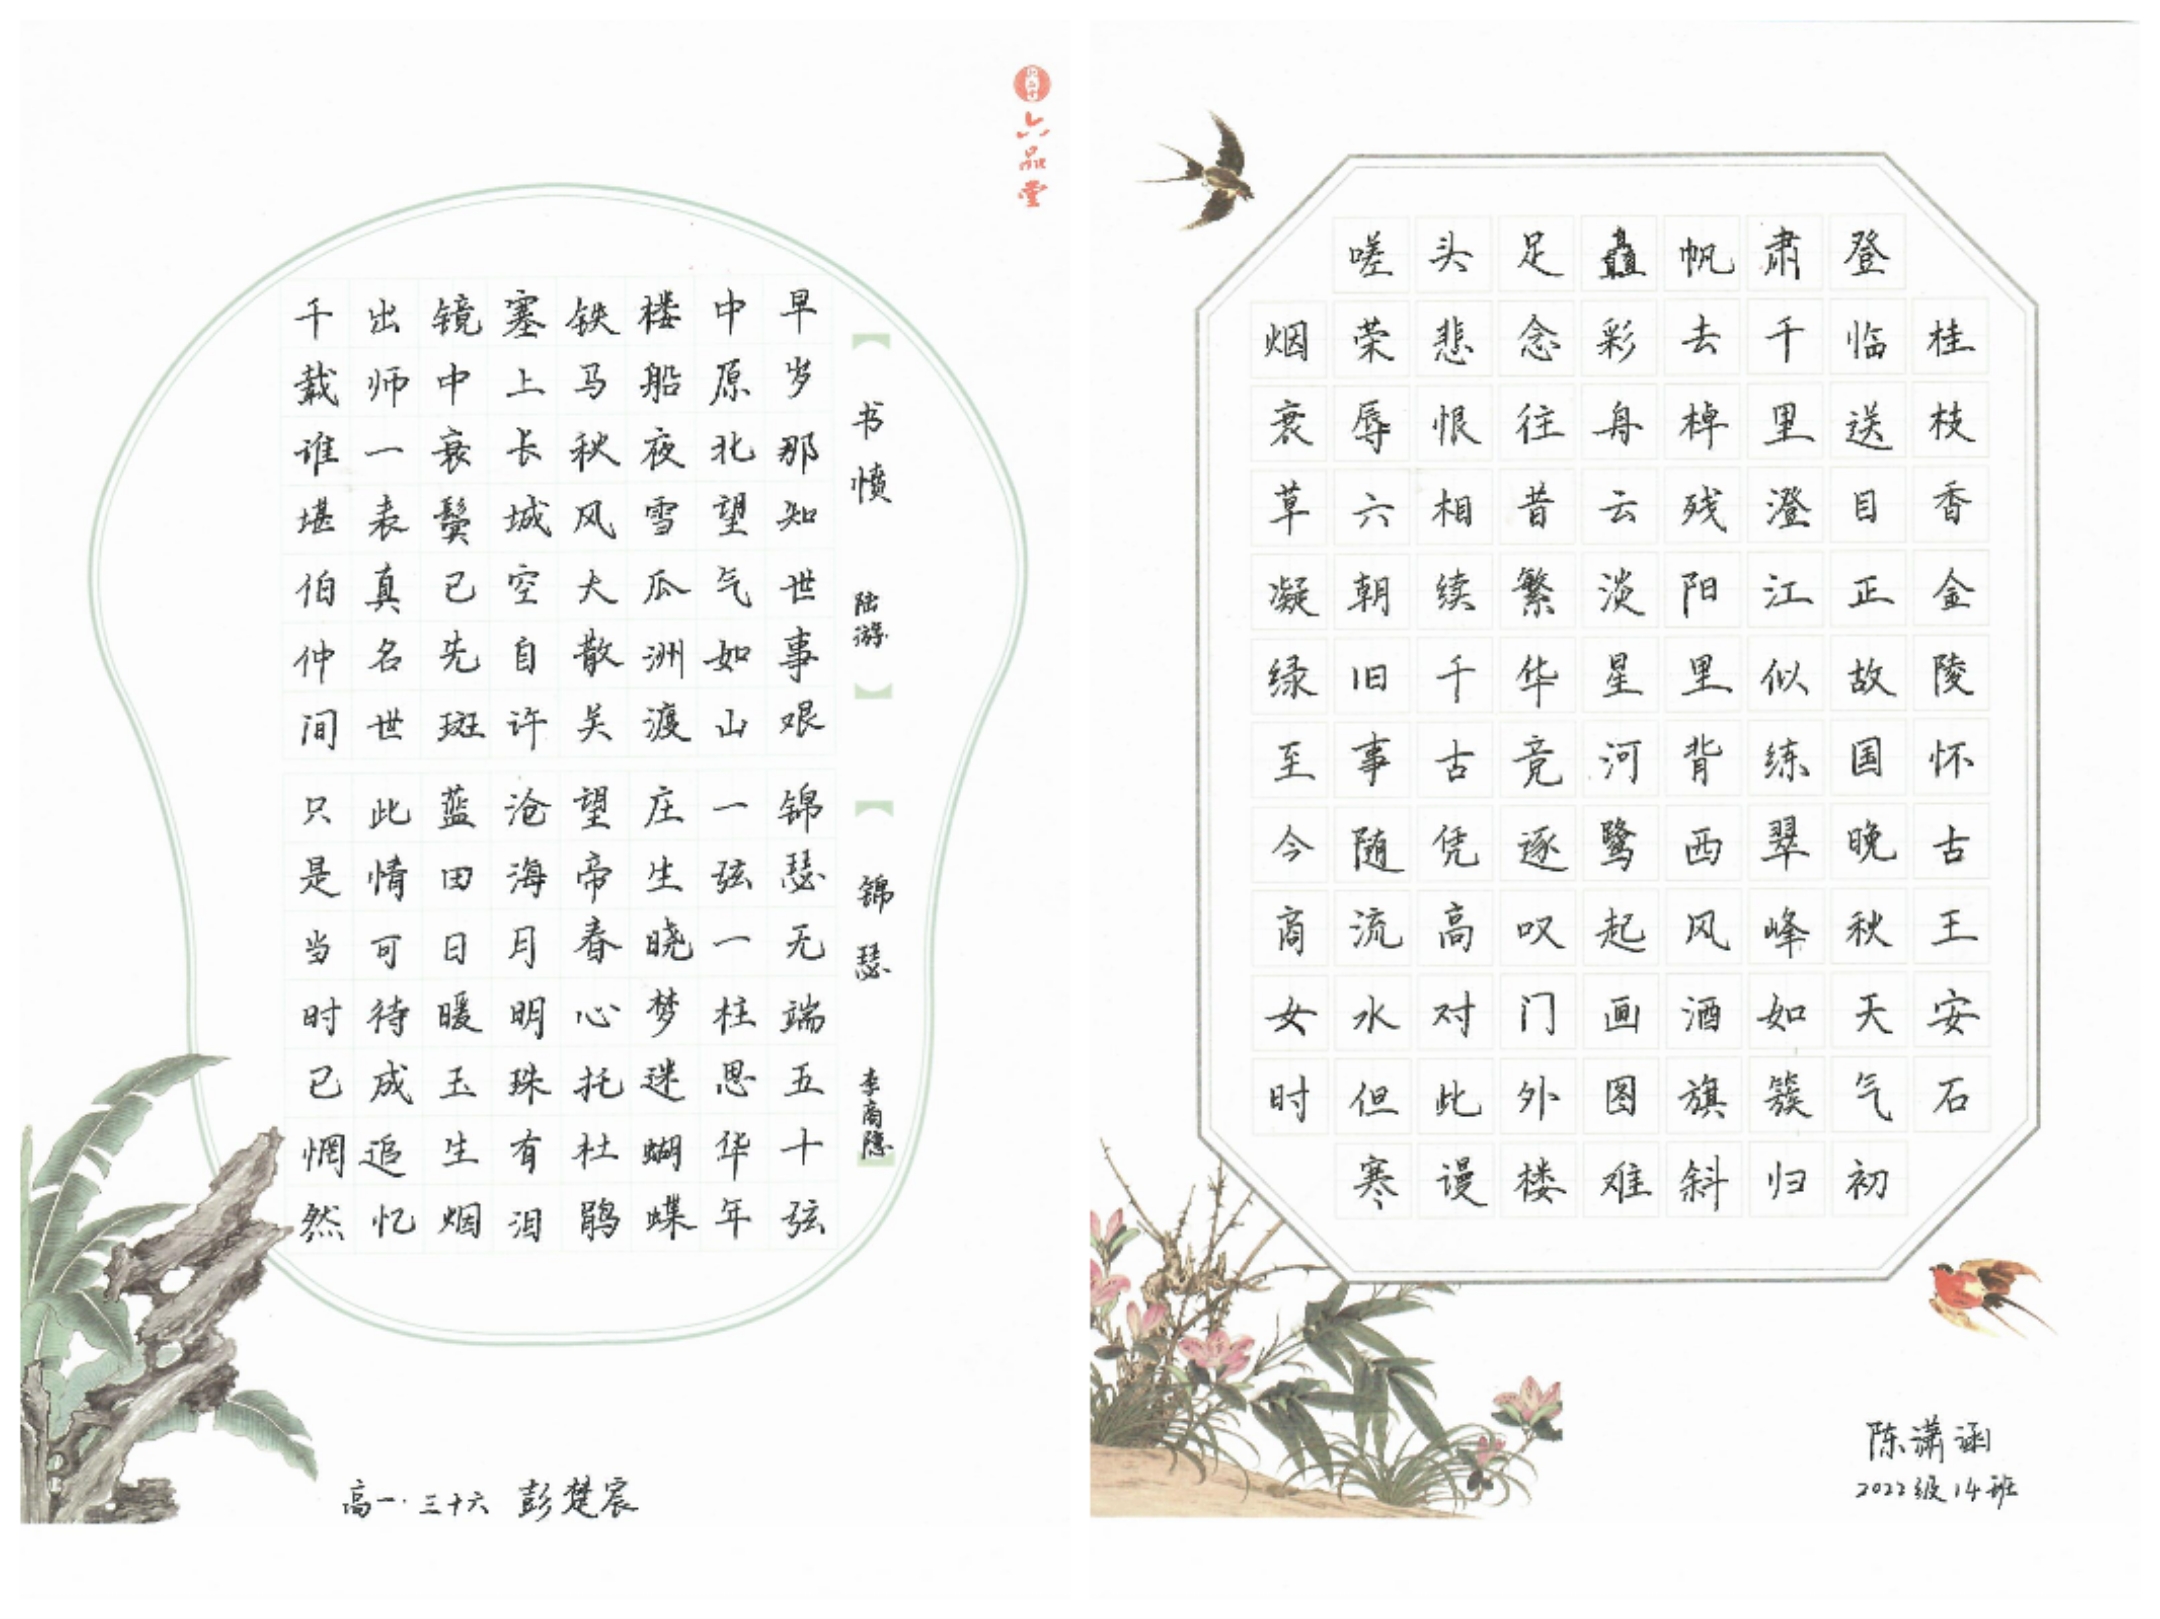 六品堂
【书愤 陆游】
早岁那知世事艰
中原北望气如山
楼船夜雪瓜洲渡
铁马秋风大散关
塞上长城空自许
镜中衰鬓已先斑
出师一表真名世
千载谁堪伯仲间
【锦瑟 李商隐】
锦瑟无端五十弦
一弦一柱思华年
庄生晓梦迷蝴蝶
望帝春心托杜鹃
沧海月明珠有泪
蓝田日暖玉生烟
此情可待成追忆
只是当时已惘然
高一·三十六 彭楚宸
桂枝香金陵怀古王安石
登临送目正故国晚秋天气初
肃千里澄江似练翠峰如簇归
帆去棹残阳里背西风酒旗斜
矗彩舟云淡星河鹭起画图难
足念往昔繁华竟逐叹门外楼
头悲恨相续千古凭高对此谩
嗟荣辱六朝旧事随流水但寒
烟衰草凝绿至今商女时
陈潇涵
2022级14班